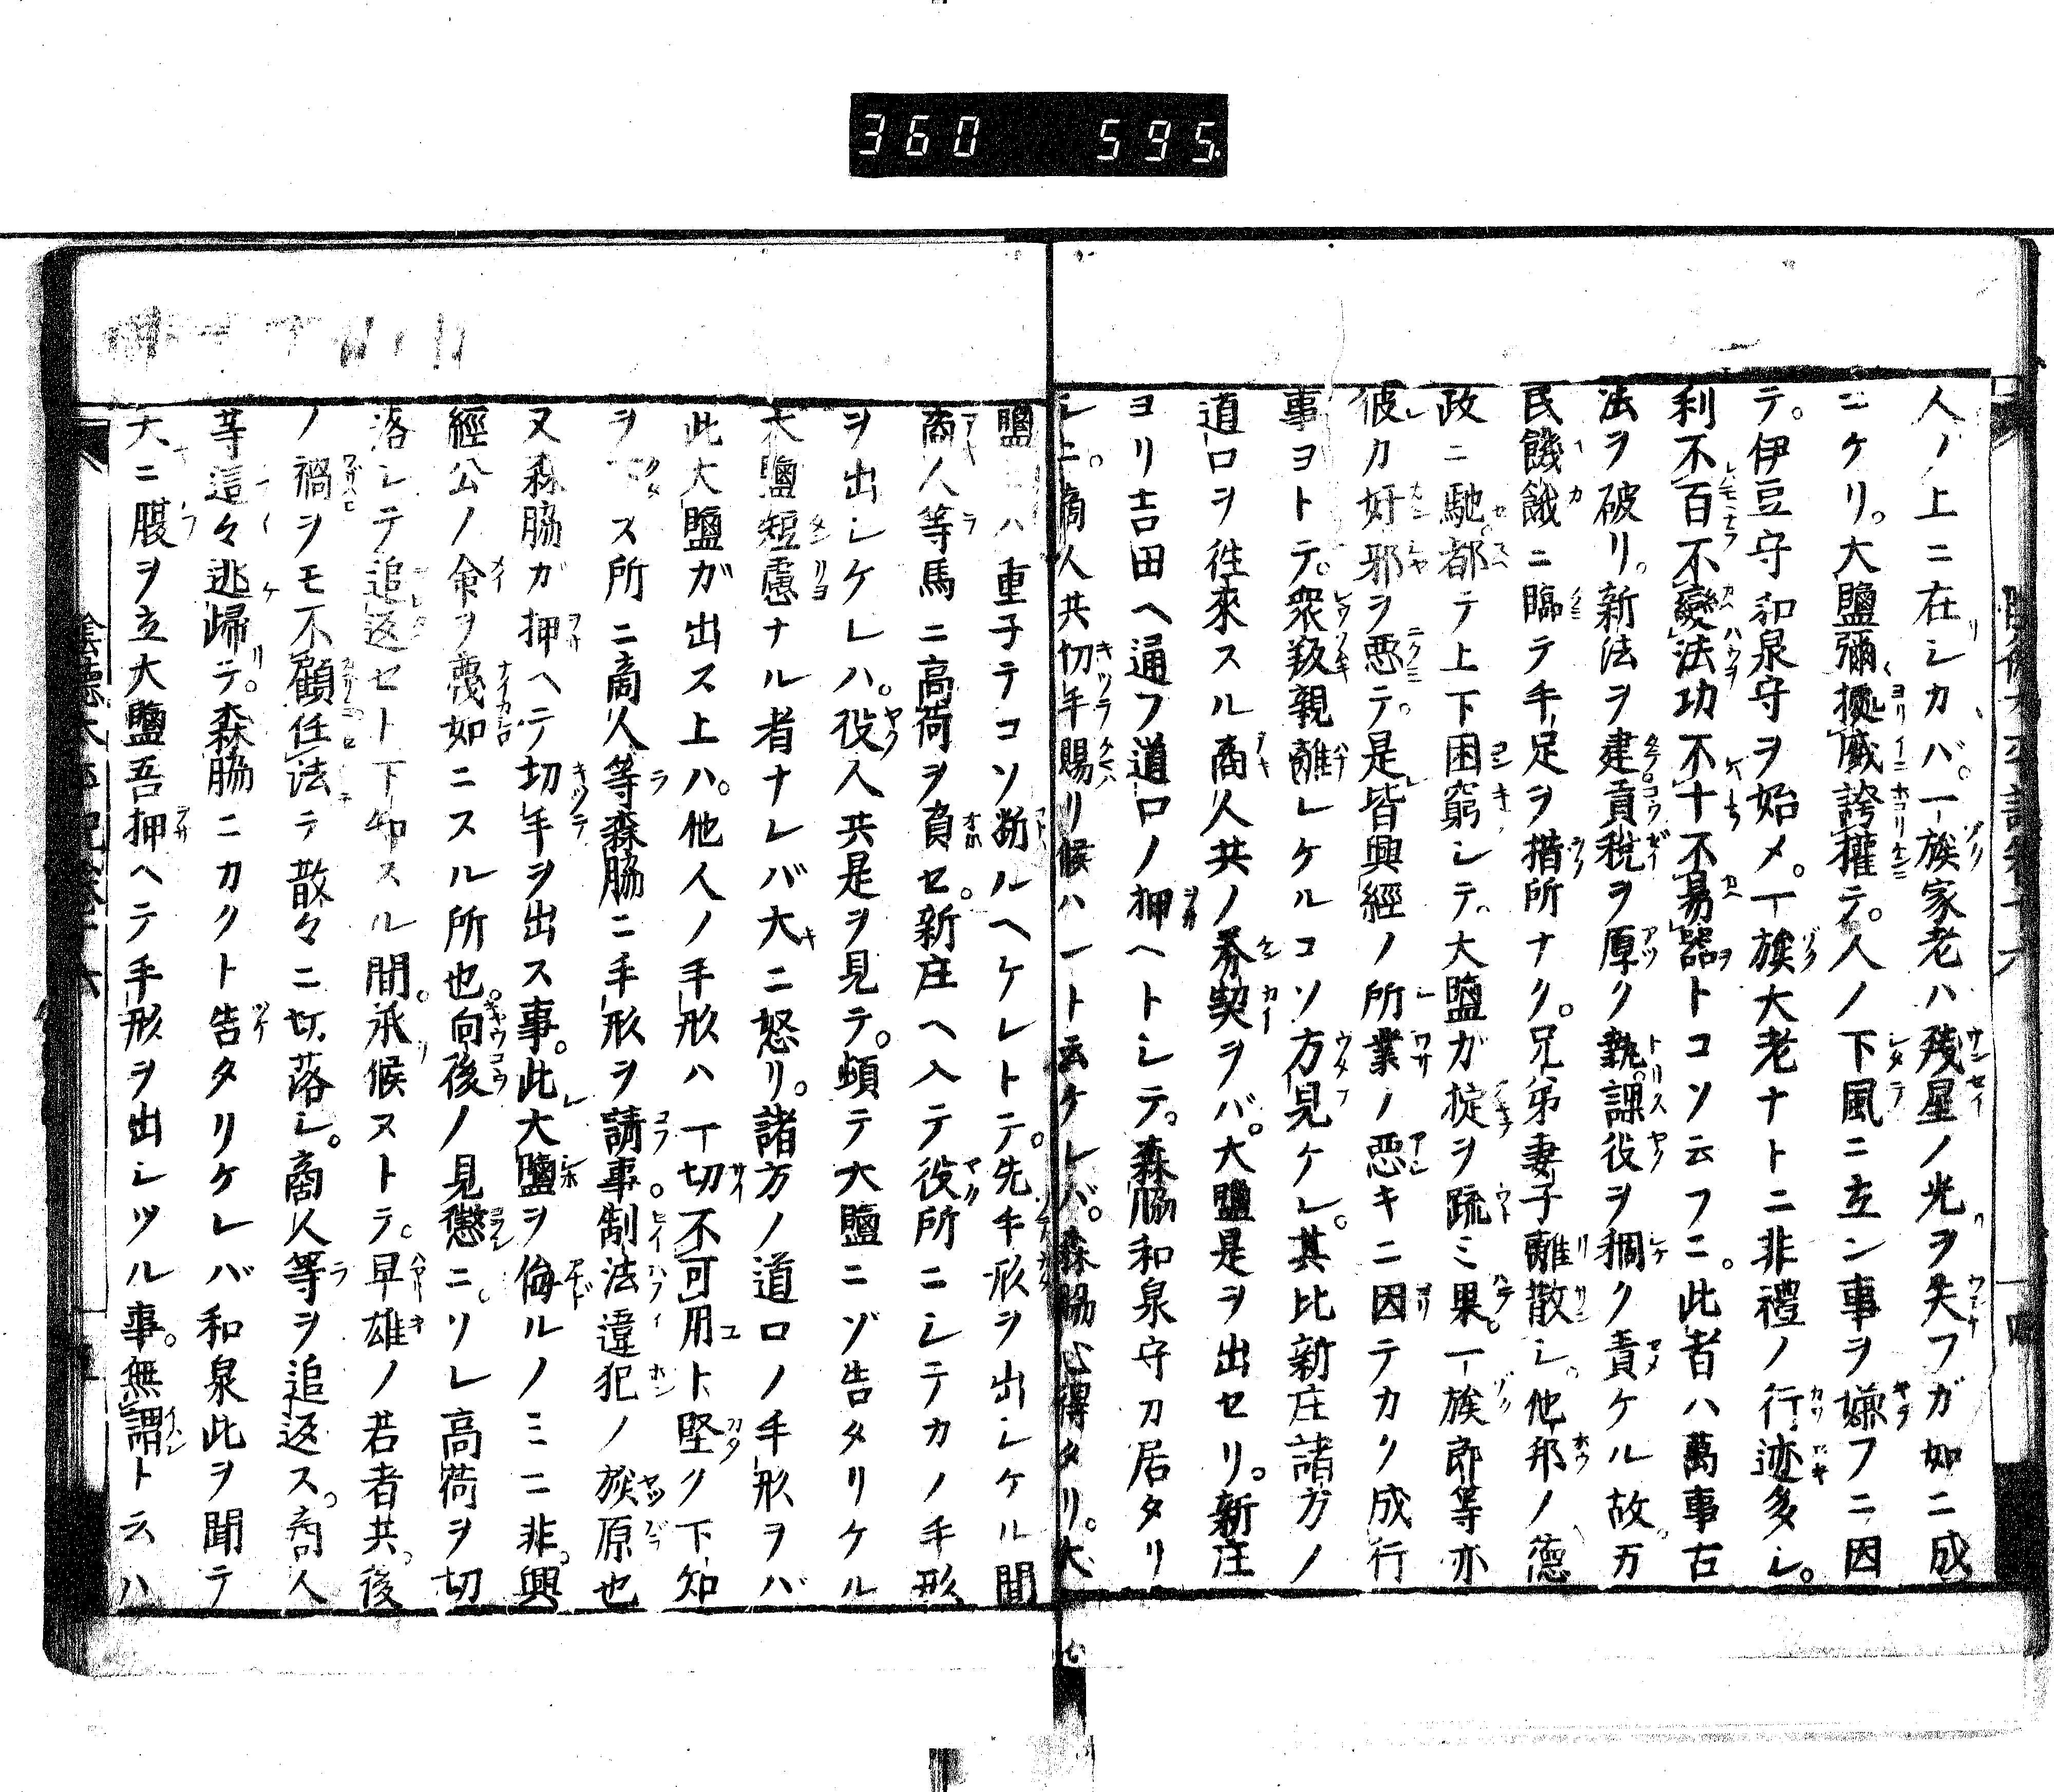 360 595.
人ノ上ニ在シカバ。一族家老ハ殘星ノ光ヲ失フガ如ニ成
ニケリ。大鹽彌據威誇權テ。人ノ下風ニ立ン事ヲ嫌フニ因
テ。伊豆守和泉守ヲ始メ。一族大老ナトニ非禮ノ行迹多シ。
利不百不變法功不十不易器トコソ云フニ。此者ハ萬事古
法ヲ破リ。新法ヲ建貢稅ヲ厚ク執。課役ヲ稠ク責ケル故。万
民饑餓ニ臨テ手足ヲ措所ナク。兄弟妻子離散シ。他邦ノ德
政ニ馳。都テ上下困窮シテ。大鹽ガ掟ヲ疏ミ果。一族郎等亦
彼カ奸邪ヲ惡テ。是皆興經ノ所業ノ惡キニ因テカク成行
事ヨトテ。衆叛親離レケルコソ方見ケレ。其比新庄諸方ノ
道口ヲ往來スル商人共ノ券契ヲバ。大鹽是ヲ出セリ。新庄
ヨリ吉田ヘ通フ道口ノ押ヘトシテ。森脇和泉守カ居タリ
シニ。商人共切手賜リ候ハント云ケレバ。森脇心得タリ。大
鹽ニハ重子テコソ斷ルヘケレトテ。先手形ヲ出シケル間
商人等馬ニ高荷ヲ負セ。新庄ヘ入テ役所ニシテカノ手形
ヲ出シケレハ。役人共是ヲ見テ。頓テ大鹽ニゾ告タリケル
大鹽短慮ナル者ナレバ大ニ怒リ。諸方ノ道口ノ手形ヲバ
此大鹽ガ出ス上ハ。他人ノ手形ハ一切不可用ト堅ク下知
ヲ下ス所ニ商人等森脇ニ手形ヲ請事。制法違犯ノ族原也
又森脇ガ押ヘテ切手ヲ出ス事。此大鹽ヲ侮ルノミニ非。興
經公ノ命ヲ蔑如ニスル所也。向後ノ見懲ニ。ソレ高荷ヲ切
落シテ追返セト下知スル間。承候ヌトテ。早雄ノ若者共。後
ノ禍ヲモ不顧任法テ散々ニ切落シ。商人等ヲ追返ス。商人
等這々逃歸テ。森脇ニカクト告タリケレバ和泉此ヲ聞テ
大ニ腹ヲ立大鹽吾押ヘテ手形ヲ出シツル事。無謂ト云ハ